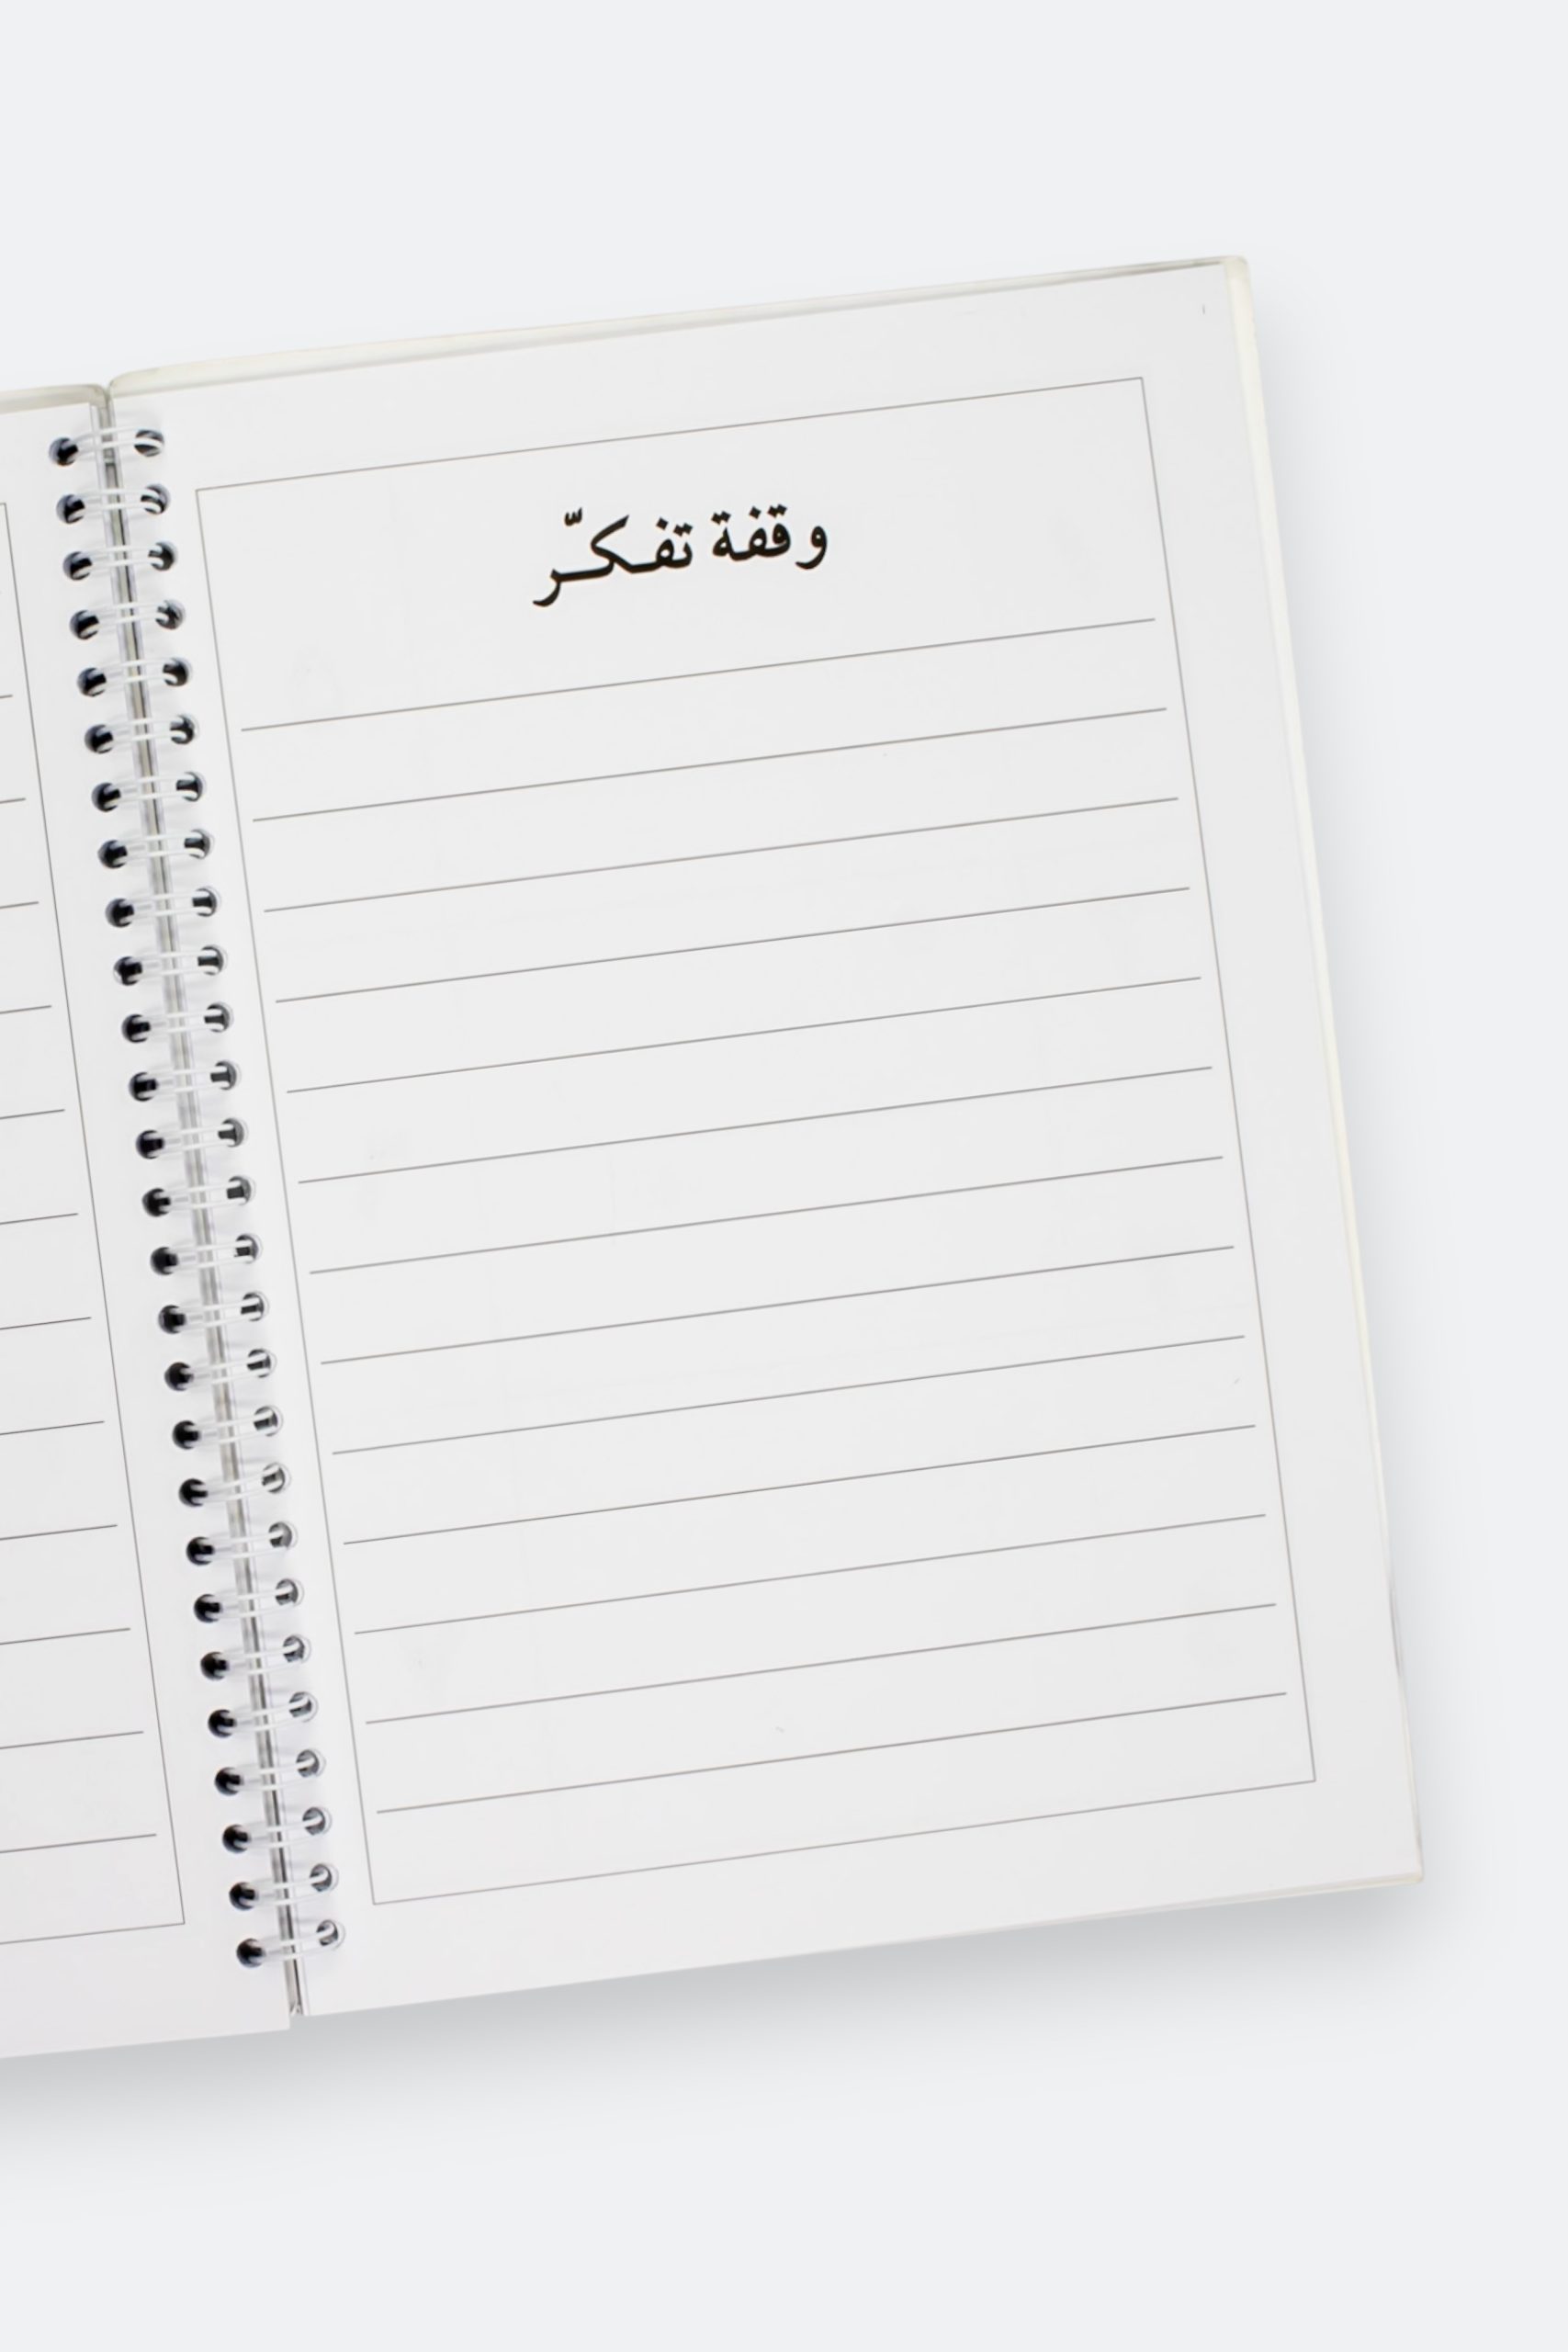 وقفة تفكّر